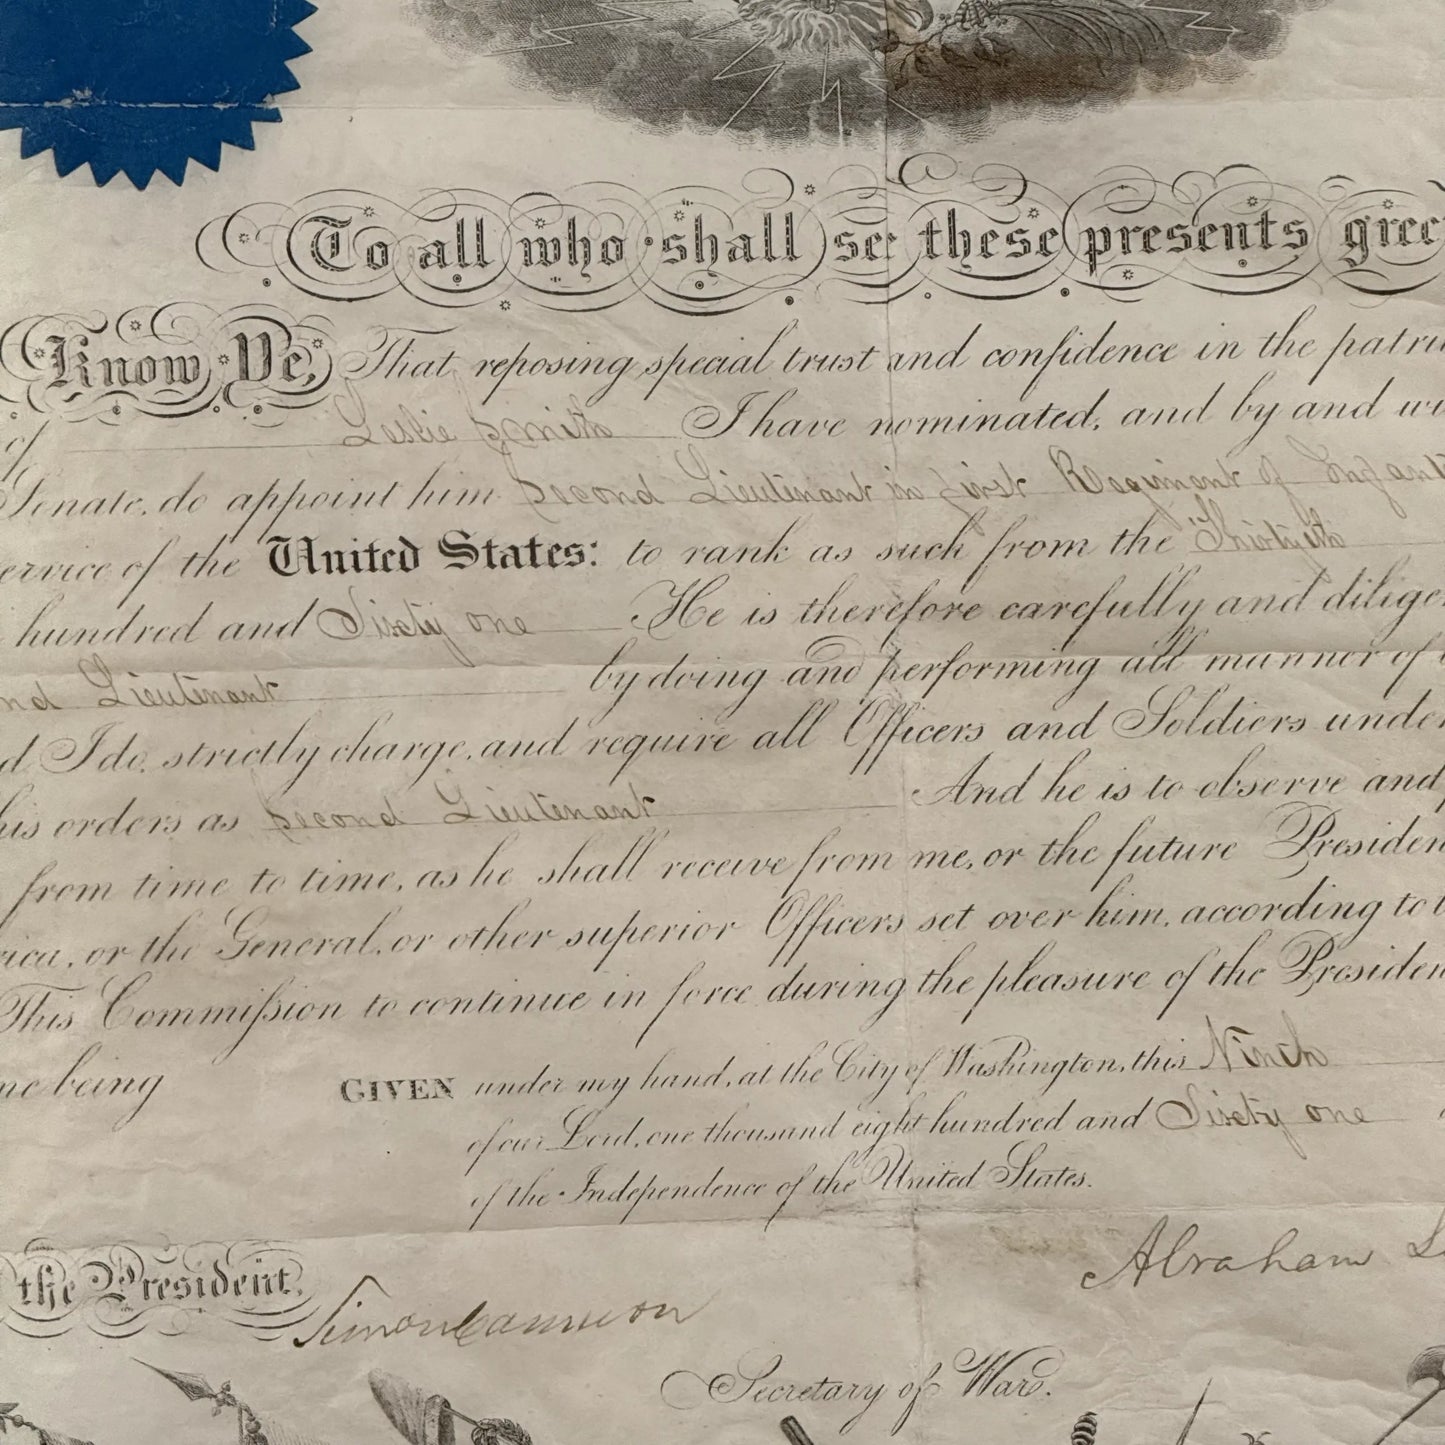 To all who shall see these presents gree
Know Ye, That reposing special trust and confidence in the patri
of Leslie Smith I have nominated, and by and wi
Senate, do appoint him Second Lieutenant in First Regiment of Infant
ervice of the United States: to rank as such from the Thirtyith
hundred and Sixty one He is therefore carefully and dilige
nd Lieutenant by doing and performing all manner of
d I do strictly charge, and require all Officers and Soldiers under
his orders as Second Lieutenant And he is to observe and
from time to time, as he shall receive from me, or the future Presiden
rica, or the General, or other superior Officers set over him, according to t
This Commission to continue in force during the pleasure of the Presiden
me being
GIVEN under my hand, at the City of Washington, this Ninth
of our Lord, one thousand eight hundred and Sixty one
of the Independence of the United States.
Abraham L
the President,
Simon Cameron
Secretary of War.